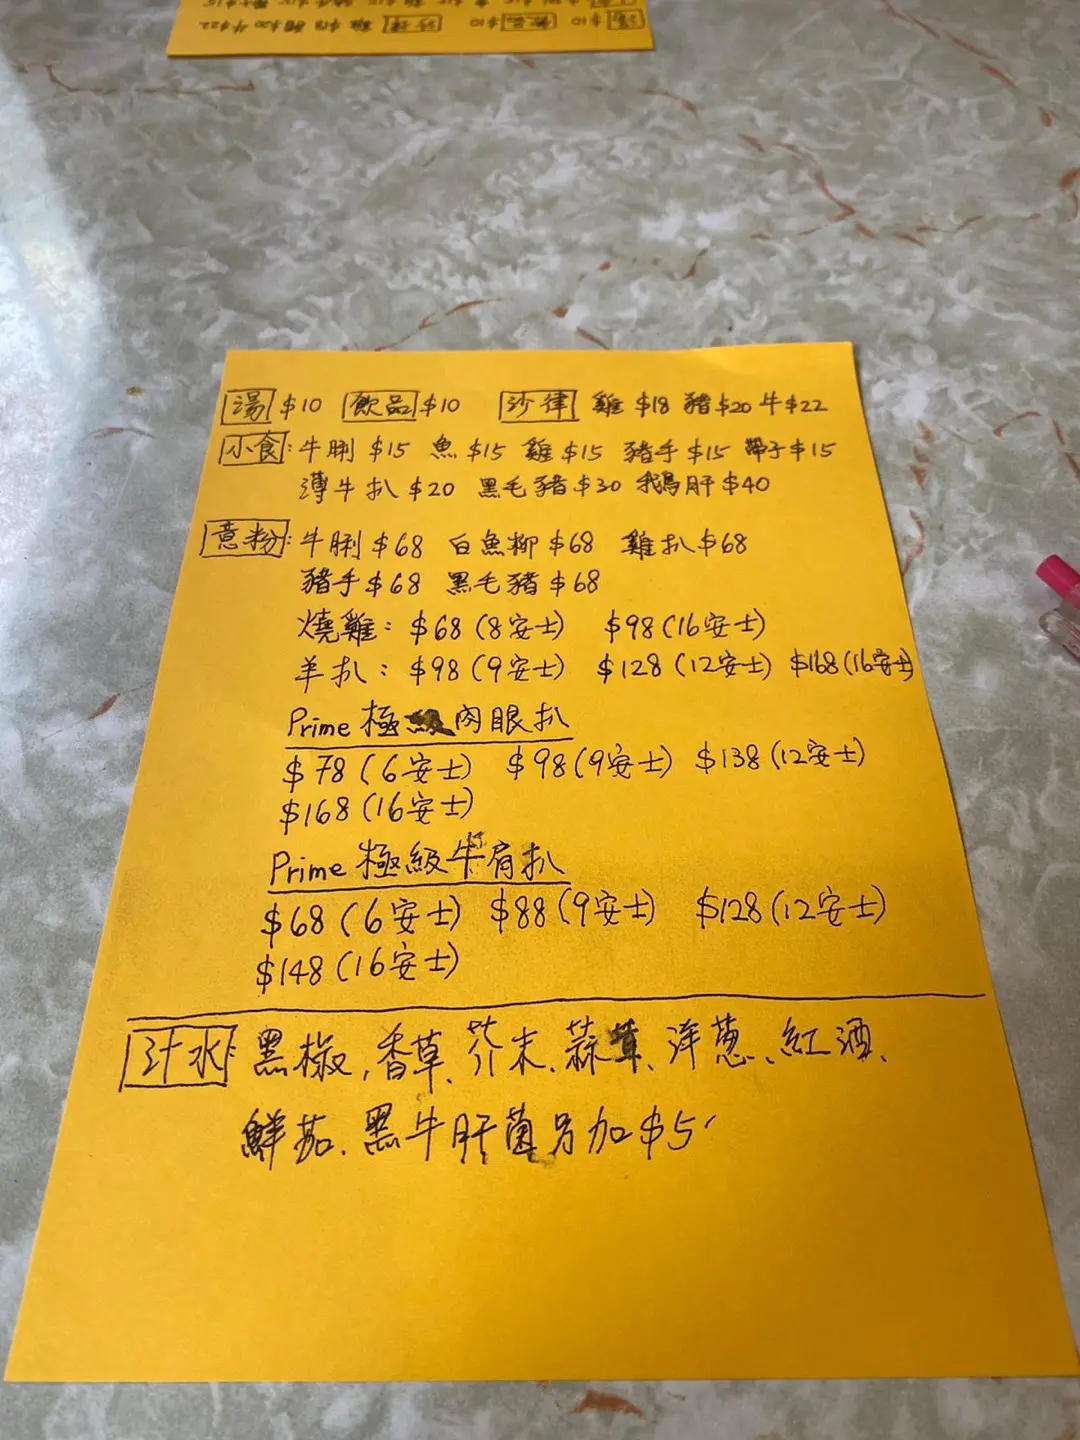 湯 $10 飲品 $10 沙律 雞 $18 豬 $20 牛 $22
小食: 牛脷 $15 魚 $15 雞 $15 豬手 $15 帶子 $15
薄牛扒 $20 黑毛豬 $30 鵝肝 $40
意粉: 牛脷 $68 白魚柳 $68 雞扒 $68
豬手 $68 黑毛豬 $68
燒雞: $68 (8安士) $98 (16安士)
羊扒: $98 (9安士) $128 (12安士) $168 (16安士)
Prime 極級肉眼扒
$78 (6安士) $98 (9安士) $138 (12安士)
$168 (16安士)
Prime 極級牛肩扒
$68 (6安士) $88 (9安士) $128 (12安士)
$148 (16安士)
汁水: 黑椒, 香草、芥末、蒜茸、洋蔥、紅酒、
鮮茄、黑牛肝菌另加 $5
湯 $10 飲品 $10 沙律 雞 $18 豬 $20 牛 $22